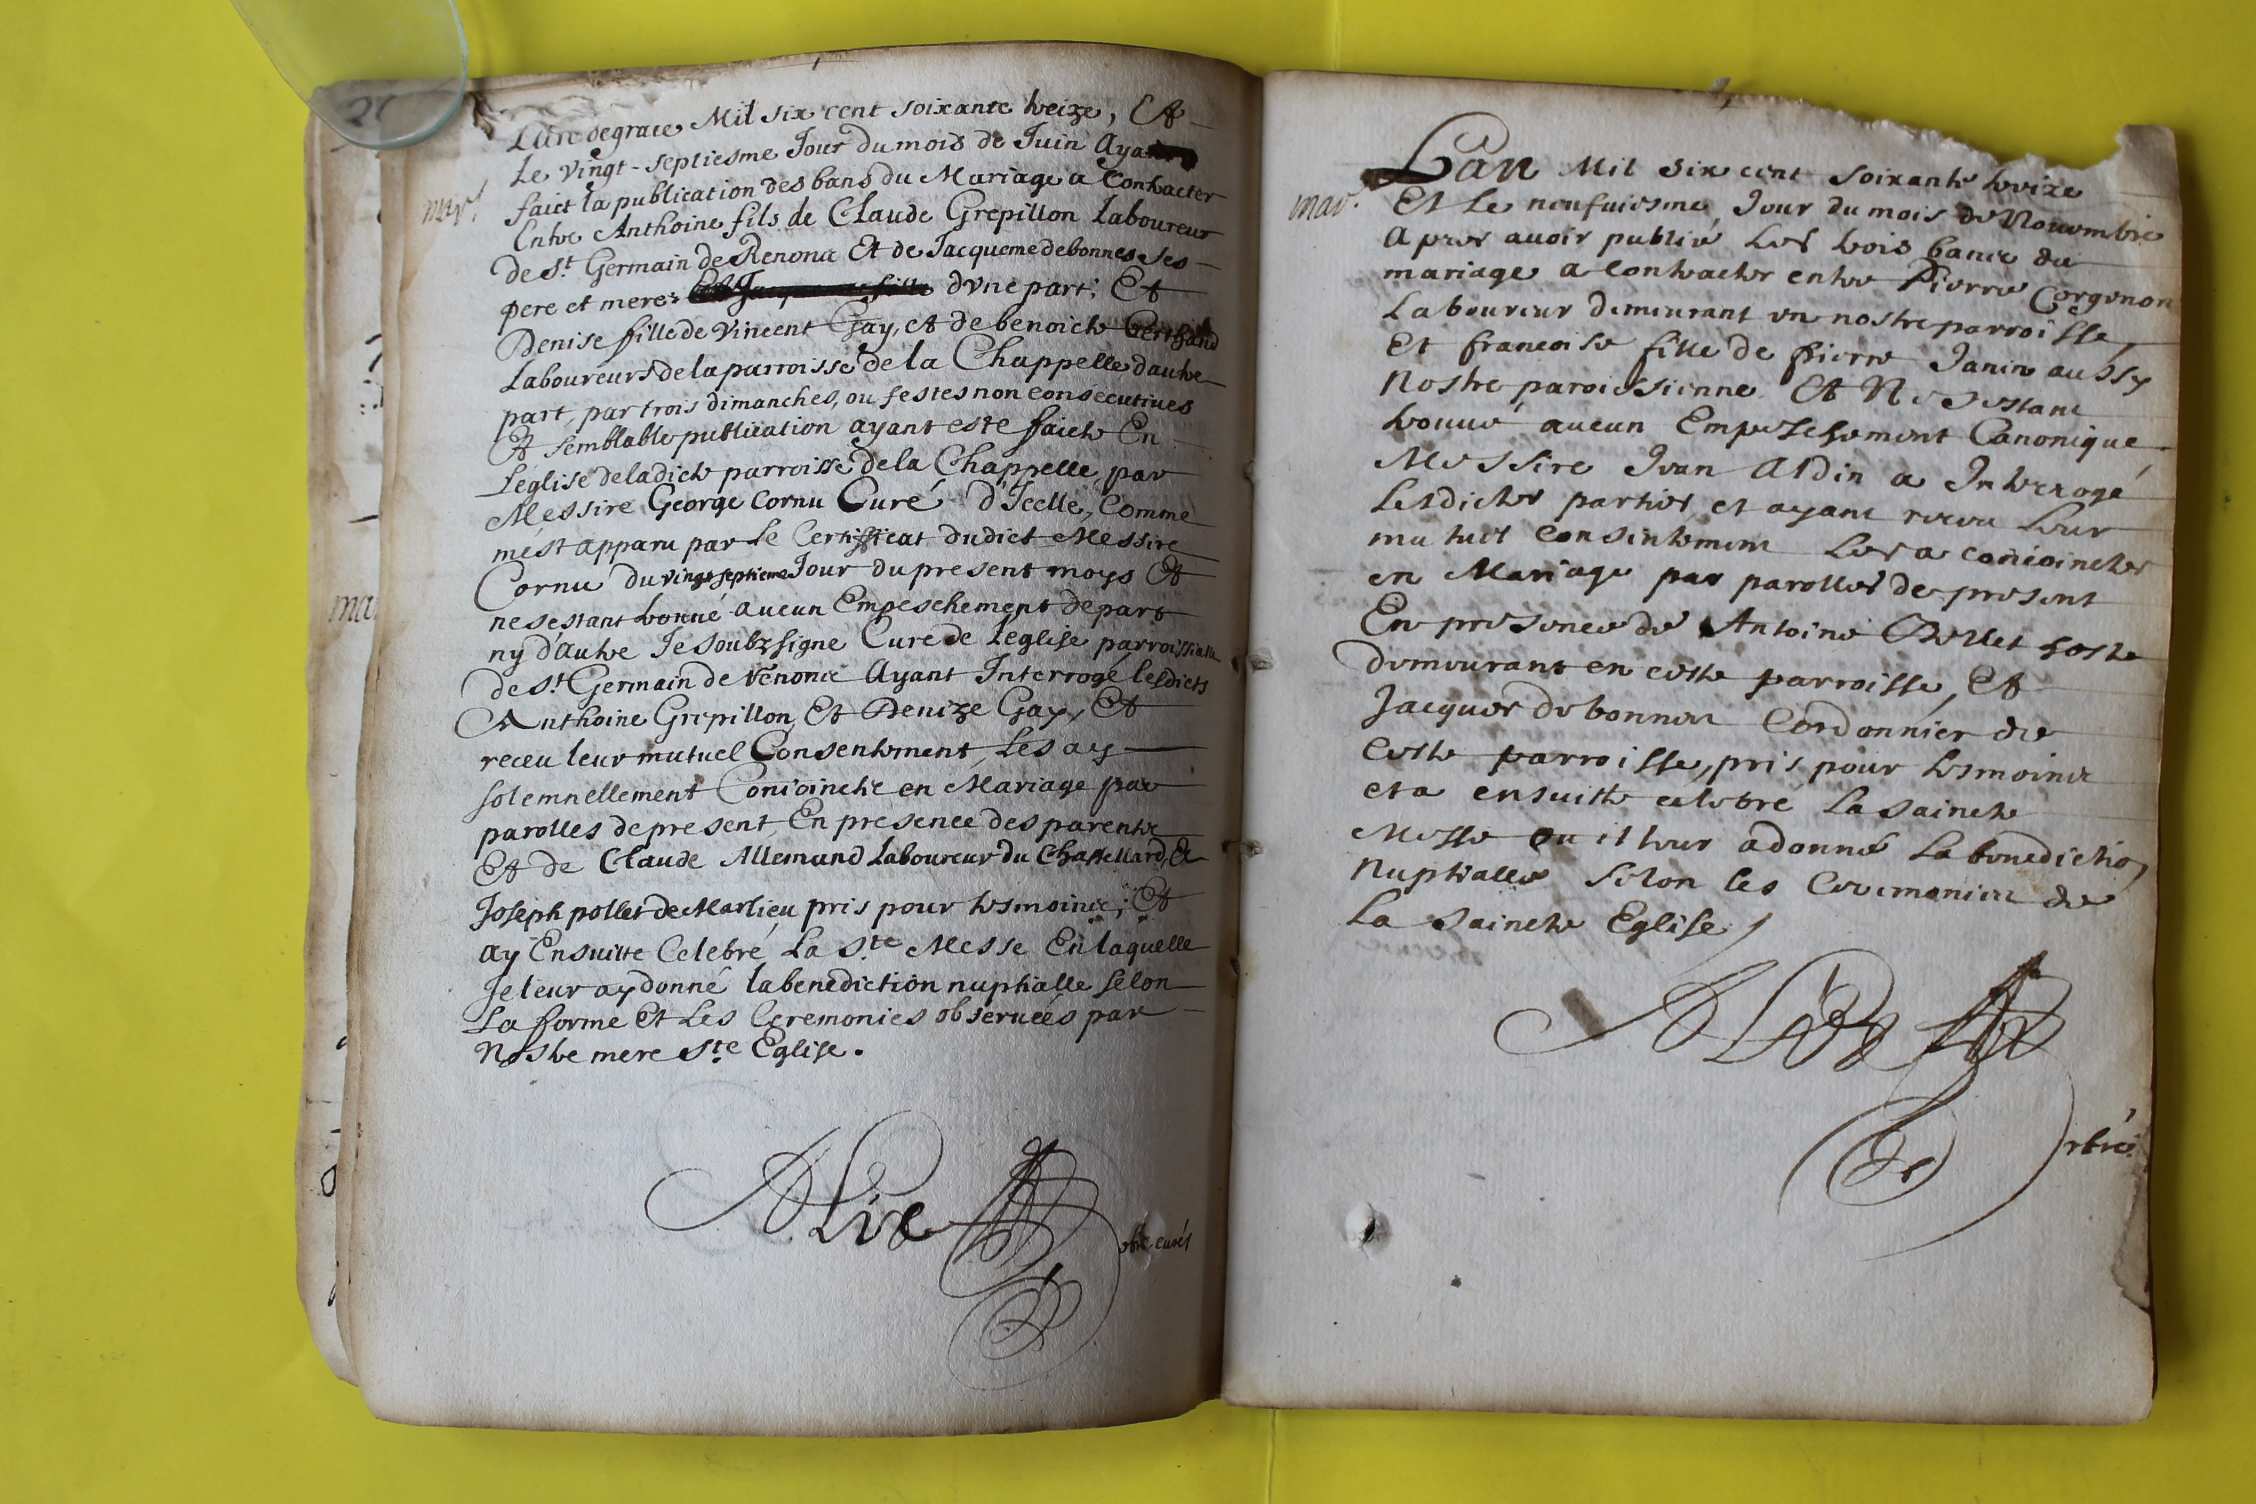 21
L'an de grace Mil six cent soixante treize, Et
Le vingt-septiesme Jour du mois de Juin Ayant
mar.
faict la publication des bans du Mariage a Contracter
Entre Anthoine fils de Claude Grepillon Laboureur
de St. Germain de Renona Et de Jacqueme debonnes ses
pere et mere; d'vne part; Et
Denise fille de Vincent Gay, et de benoiste
Laboureurs de la parroisse de la Chappelle dautre
part, par trois dimanches, ou festes non consecutiues
Et semblable publication ayant este faicte En
L'eglise de ladicte parroisse de la Chappelle, par
Messire George Cornu Curé d'Icelle, Comme
mést apparu par Le Certifficat dudict Messire
Cornu du vingt septieme Jour du present moys Et
ne sestant trouué aucun Empeschement de part
ny d'autre Je soubzsigne Curé de L'eglise parroissialle
de St. Germain de Renona Ayant Interrogé lesdicts
Anthoine Grepillon, Et Denize Gay, Et
receu leur mutuel Consentement, Les ay
solemnellement Conioincts en Mariage par
parolles de present, En presence des parents
Et de Claude Allemand Laboureur du Chastellard, Et
Joseph pollet de Marlieu pris pour tesmoins; Et
ay Ensuitte Celebré La Ste. Messe En laquelle
Je leur ay donné la benediction nuptialle selon
La forme Et Les Ceremonies obseruées par
Nostre mere Ste Eglise.
curé
ma
mar.
L'an Mil six cent soixante treize
Et Le neufuiesme Jour du mois de Nouembre
Apres auoir publié Les trois bancs du
mariage a Contracter entre Pierre Corgenon
Laboureur demeurant en nostre parroisse,
Et francoise fille de Pierre Janin aussy
Nostre paroissienne Et Ne s'estant
trouué aucun Empeschement Canonique
Messire Jean Aldin a Interrogé
Lesdictes parties, et ayant receu Leur
mutuel Consentement Les a conioinctes
en Mariage par parolles de present
En presence de Antoine Bollet hoste
demeurant en ceste parroisse, Et
Jacques debonnes Cordonnier de
Ceste parroisse, pris pour tesmoins
et a ensuitte celebré La saincte
Messe ou il leur a donné La benediction
Nuptialle selon les Ceremonies de
La Saincte Eglise